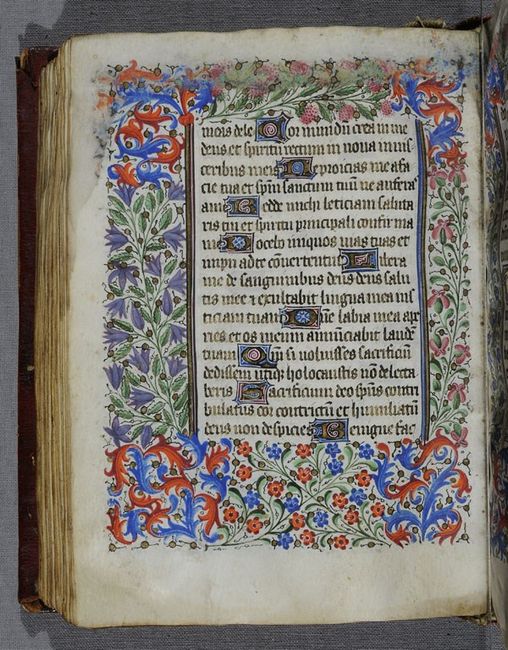 meis dele Cor mundu crea in me
deus et spiritu rectum in noua in uis
ceribus meis Ne proicias me a fa
cie tua et spm sanctum tuu ne aufera
a me Redde michi leticiam saluta
ris tui et spiritu principali confirma
me Docebo iniquos uias tuas et
impii ad te conuertentur Libera
me de sanguinibus deus deus salu
tis mee et exultabit lingua mea ius
ticiam tuam Dne labia mea ape
ries et os meum annunciabit laude
tuam Qm si uoluisses sacrificiu
dedissem utiqz holocaustis no delecta
beris Sacrificium deo sps contri
bulatus cor contritu et humiliatu
deus non despicies Benigne fac